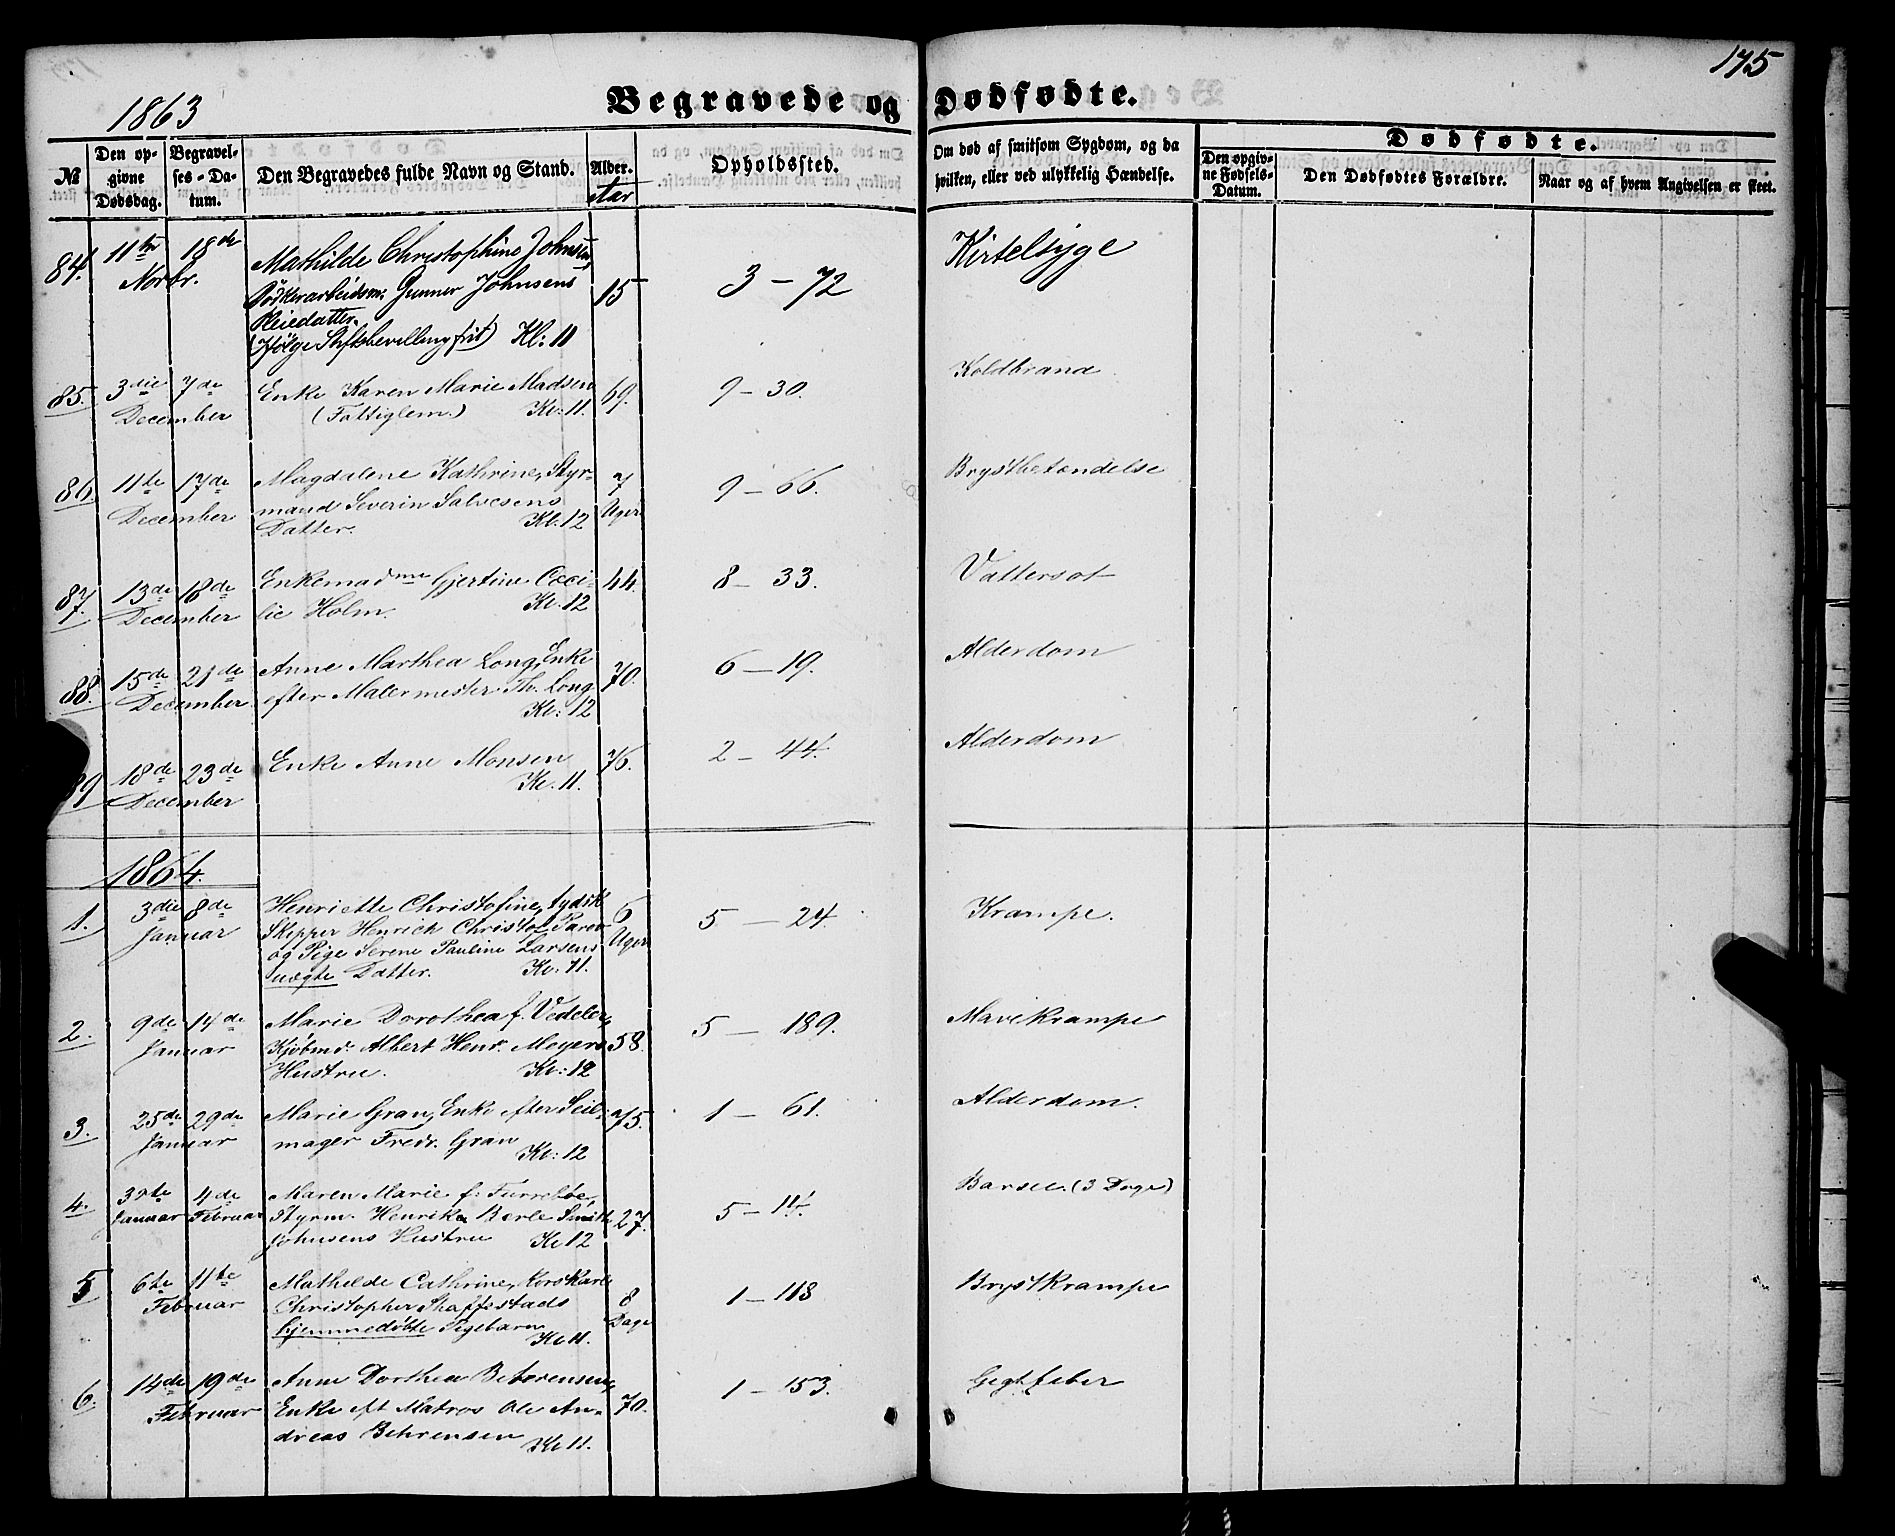 175
1863
Begravede og Dødfødte.
№
Den op-
givne
Dødsdag.
Begravel-
ses-Da-
tum.
Den Begravedes fulde Navn og Stand.
Alder.
Aar
Opholdssted.
Om død af smitsom Sygdom, og da
hvilken, eller ved ulykkelig Hændelse.
Dødfødte.
Den opgiv-
ne Fødsels-
Datum.
Den Dødfødtes Forældre.
Naar og af hvem Angivelsen er skeet.
84. 11te 18de Mathilde Christophine Johnsen, 15 3 – 72 Kirtelsyge
Novbr. Bødkerarbeidsm: Gunner Johnsens
Pleiedatter.
(Ifølge Stiftsbevilling frit) Kl: 11
85. 3die 7de Enke Karen Marie Madsen 69. 9 – 30. Koldbrand.
December (Fattiglem.) Kl: 11.
86. 11te 17de Magdalene Kathrine, Styr- 7 9 – 66. Brystbetændelse
December mand Severin Salvesens Uger
Datter. Kl. 12
87. 13de 18de Enkemadme Gjertine Ceci- 44. 8 – 33. Vattersot
December lie Holm. Kl. 12
88. 15de 21de Anne Marthea Long, Enke 70. 6 – 19. Alderdom
December efter Malermester Th. Long
Kl: 12
89 18de 23de Enke Anne Monsen 76. 2 – 44. Alderdom
December Kl. 11.
1864.
1. 3die 8de Henriette Christofine, tydsk 6 5 – 24. Krampe.
Januar Skipper Henrich Christof Uger
og Pige Serene Pauline Larsens
uægte Datter. Kl. 11.
2. 9de 14de Marie Dorothea f. Vedeler, 58. 5 – 189. Mavekrampe
Januar Kjøbmd. Albert Henr. Meyers
Hustru. Kl: 12
3. 25de 29de Marie Gran, Enke efter Seil- 75. 1 – 61. Alderdom.
Januar mager Fredr. Gran
Kl: 12
4. 4de Maren Marie f: 27. 5 – Barsel. (3 Dage)
Januar Februar Styrm. Henrik Berle Smith
Johnsens Hustru Kl 12
5 6te 11te Mathilde Cathrine, Korskarl 8 1 – 118 Brystkrampe
Februar Christopher Skaffestads Dage
hjemmedøbte Pigebarn
Kl 11.
6. 14de 19de Anne Dorthea Behrensen, 70. 1 – 153. Gigtfeber
Februar Enke eft Matros Ole An-
dreas Behrensen Kl 11.